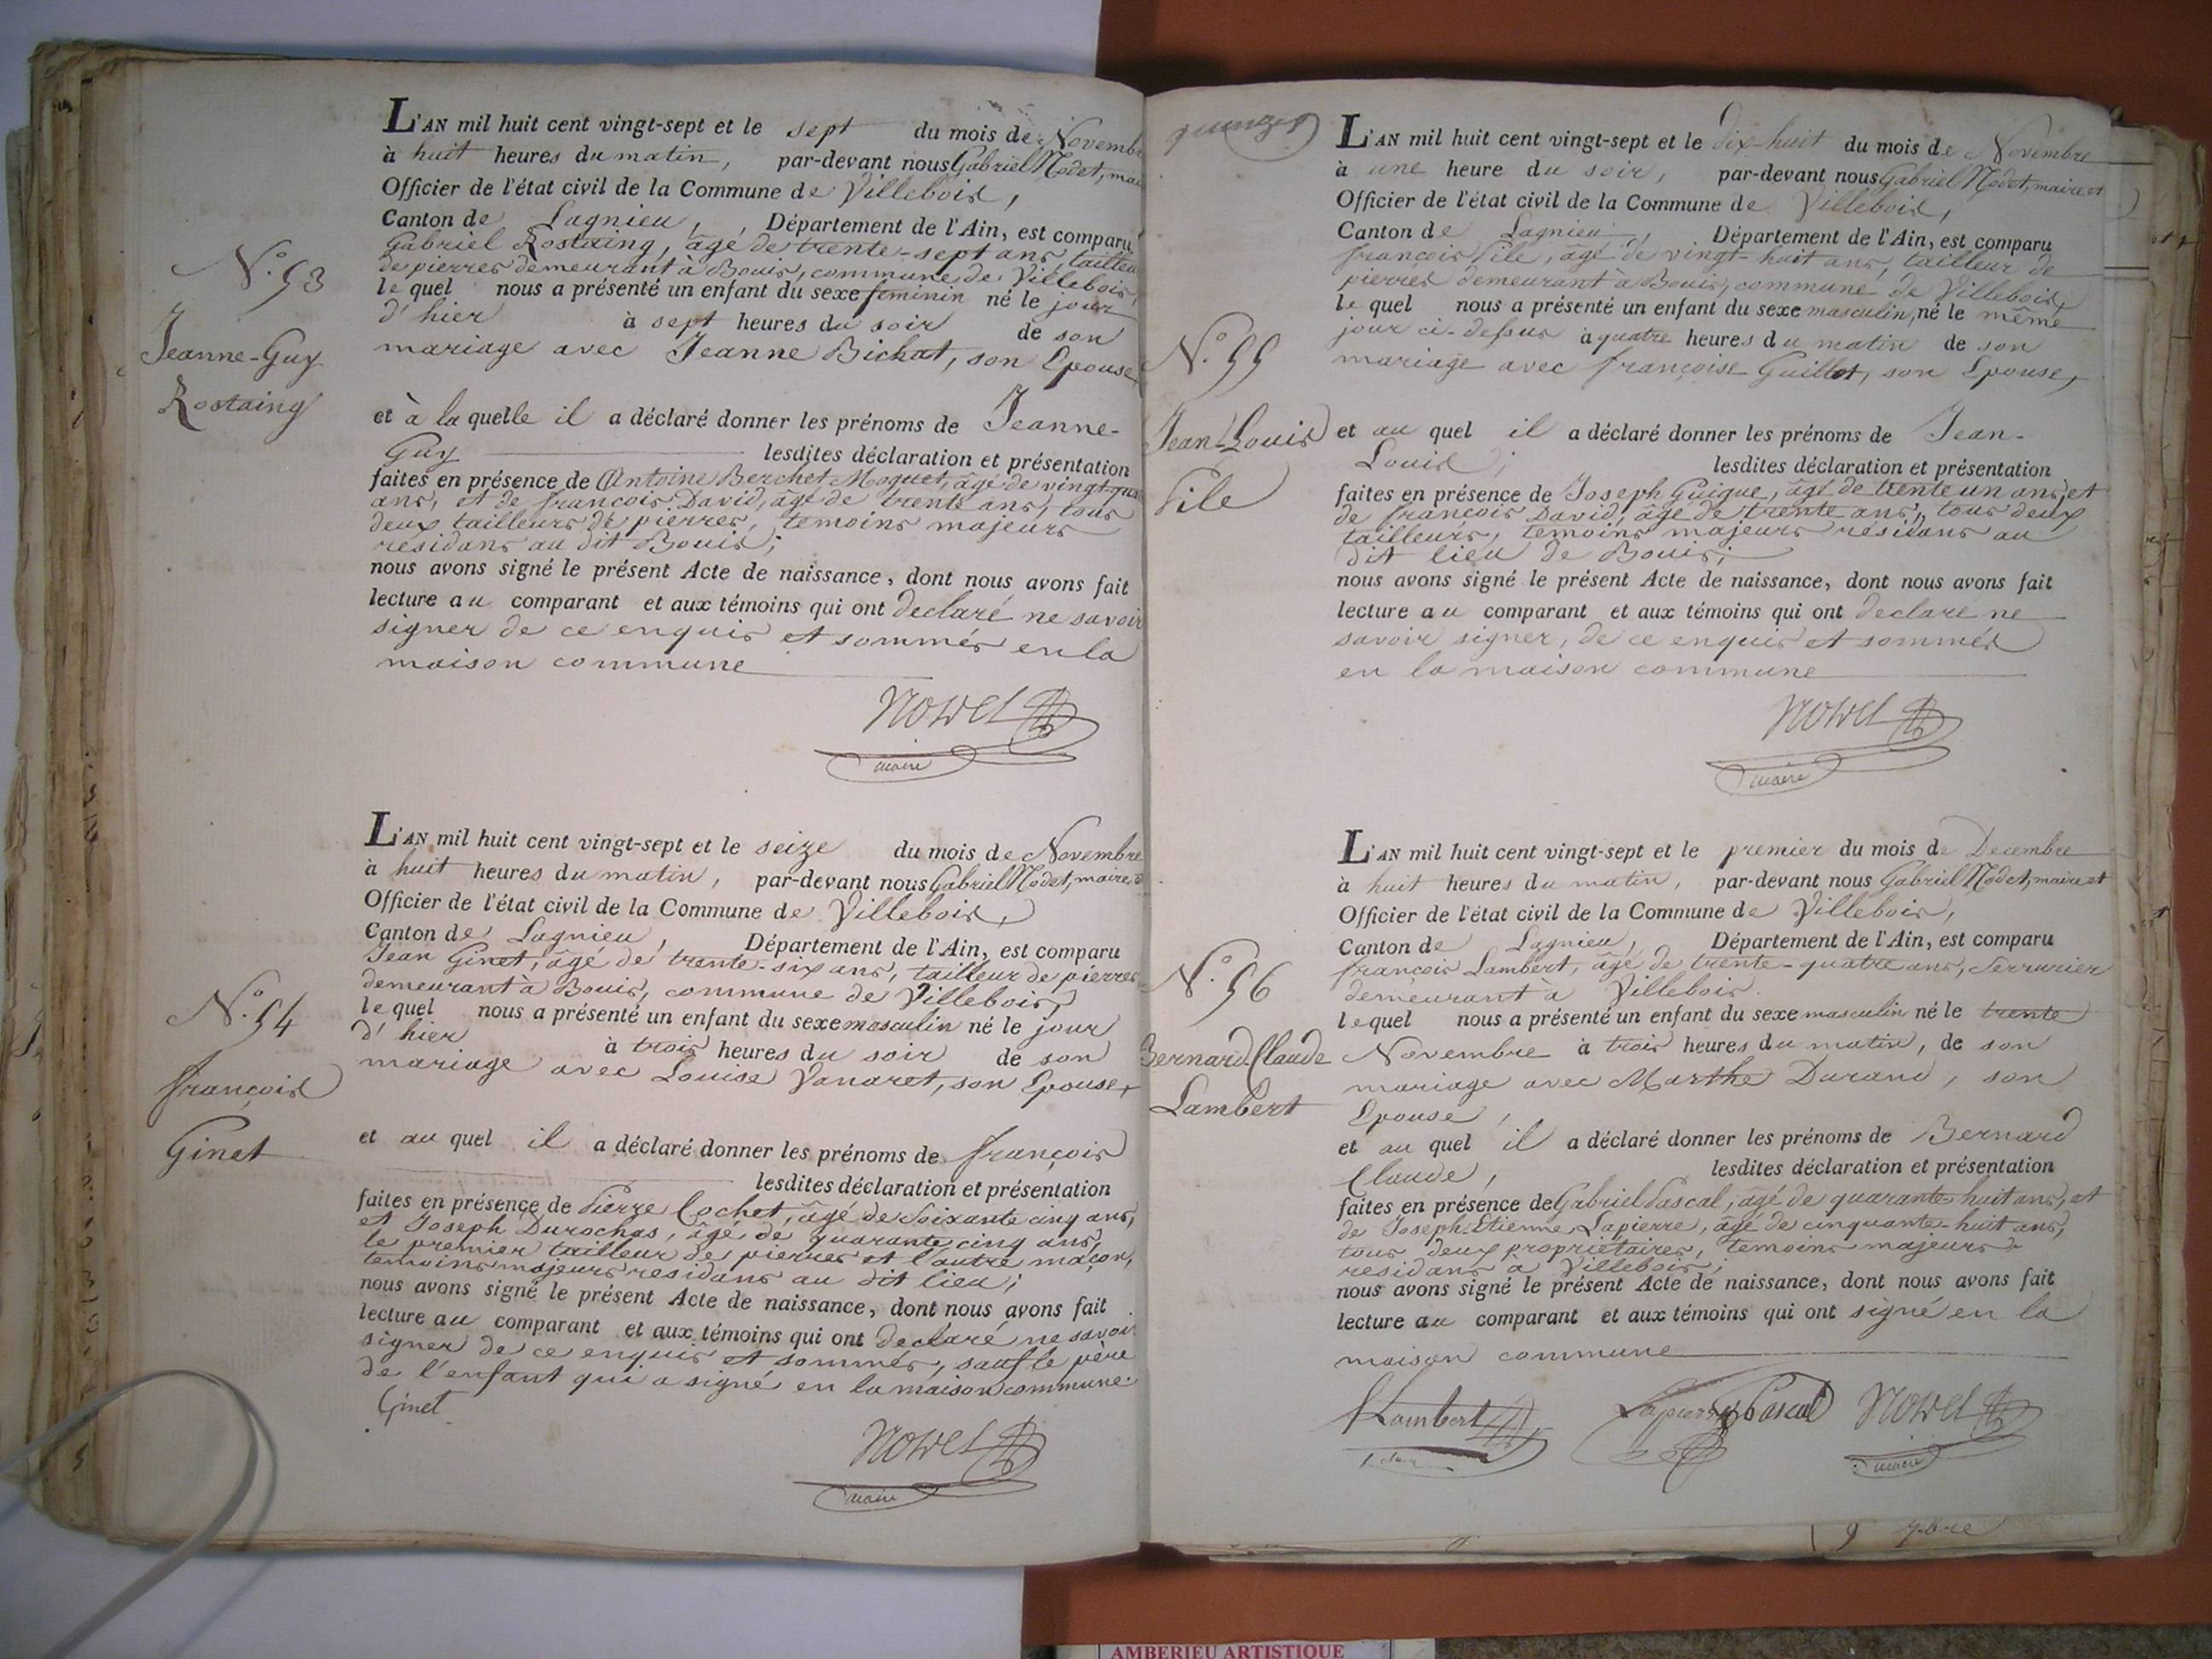 L'AN mil huit cent vingt-sept et le sept du mois de Novembre
à huit heures du matin, par-devant nous Gabriel Nodet, mai
Officier de l'état civil de la Commune de Villebois,
Canton de Lagnieu, Département de l'Ain, est comparu
Gabriel Rostaing, âgé de trente-sept ans, tailleur
de pierres demeurant à Bouis, commune de Villebois,
le quel nous a présenté un enfant du sexe feminin né le jour
d'hier à sept heures du soir de son
mariage avec Jeanne Bichat, son Epouse,
N.° 53
Jeanne-Guy
Rostaing
et à la quelle il a déclaré donner les prénoms de Jeanne-
Guy lesdites déclaration et présentation
faites en présence de Antoine Berchet Moguet, âgé de vingt
ans, et de françois David, âgé de trente ans, tous
deux tailleurs de pierres, temoins majeurs
residans au dit Bouis;
nous avons signé le présent Acte de naissance, dont nous avons fait
lecture au comparant et aux témoins qui ont declaré ne savoir
signer de ce enquis et sommés en la
maison commune
Nodet
maire
L'AN mil huit cent vingt-sept et le seize du mois de Novembre
à huit heures du matin, par-devant nous Gabriel Nodet, maire et
Officier de l'état civil de la Commune de Villebois,
Canton de Lagnieu, Département de l'Ain, est comparu
Jean Ginet, âgé de trente-six ans, tailleur de pierres
demeurant à Bouis, commune de Villebois,
le quel nous a présenté un enfant du sexe masculin né le jour
d'hier à trois heures du soir de son
mariage avec Louise Vanaret, son Epouse,
N.° 54
françois
Ginet
et au quel il a déclaré donner les prénoms de françois
lesdites déclaration et présentation
faites en présence de Pierre Cochet, âgé de Soixante cinq ans,
et Joseph Durochas, âgé de quarante cinq ans,
le premier tailleur de pierres et l'autre maçon,
temoins majeurs residans au dit lieu;
nous avons signé le présent Acte de naissance, dont nous avons fait
lecture au comparant et aux témoins qui ont declaré ne savoir
signer de ce enquis et sommés, sauf le père
de l'enfant qui a signé en la maison commune.
Ginet
Nodet
maire
L'AN mil huit cent vingt-sept et le dix-huit du mois de Novembre
à une heure du soir, par-devant nous Gabriel Nodet, maire et
Officier de l'état civil de la Commune de Villebois,
Canton de Lagnieu, Département de l'Ain, est comparu
françois Pile, âgé de vingt-huit ans, tailleur de
pierres demeurant à Bouis, commune de Villebois,
le quel nous a présenté un enfant du sexe masculin, né le même
jour ci-dessus à quatre heures du matin de son
mariage avec françoise Guillot, son Epouse,
N.° 55
Jean-Louis
Pile
et au quel il a déclaré donner les prénoms de Jean-
Louis; lesdites déclaration et présentation
faites en présence de Joseph Guigue, âgé de trente un ans, et
de françois David, âgé de trente ans, tous deux
tailleurs, temoins majeurs residans au
dit lieu de Bouis;
nous avons signé le présent Acte de naissance, dont nous avons fait
lecture au comparant et aux témoins qui ont declare ne
savoir signer, de ce enquis et sommés
en la maison commune
Nodet
maire
L'AN mil huit cent vingt-sept et le premier du mois de Decembre
à huit heures du matin, par-devant nous Gabriel Nodet, maire et
Officier de l'état civil de la Commune de Villebois,
Canton de Lagnieu, Département de l'Ain, est comparu
françois Lambert, âgé de trente-quatre ans, Serrurier
demeurant à Villebois.
lequel nous a présenté un enfant du sexe masculin né le trente
Novembre à trois heures du matin, de son
mariage avec Marthe Durand, son
Epouse,
N.° 56
Bernard Claude
Lambert
et au quel il a déclaré donner les prénoms de Bernard
Claude, lesdites déclaration et présentation
faites en présence de Gabriel Pascal, âgé de quarante-huit ans, et
de Joseph-Etienne Lapierre, âgé de cinquante-huit ans,
tous deux propriétaires, temoins majeurs
residans à Villebois;
nous avons signé le présent Acte de naissance, dont nous avons fait
lecture au comparant et aux témoins qui ont signé en la
maison commune
Lambert Lapierre Pascal Nodet
maire
9 7bre
AMBERIEU ARTISTIQUE